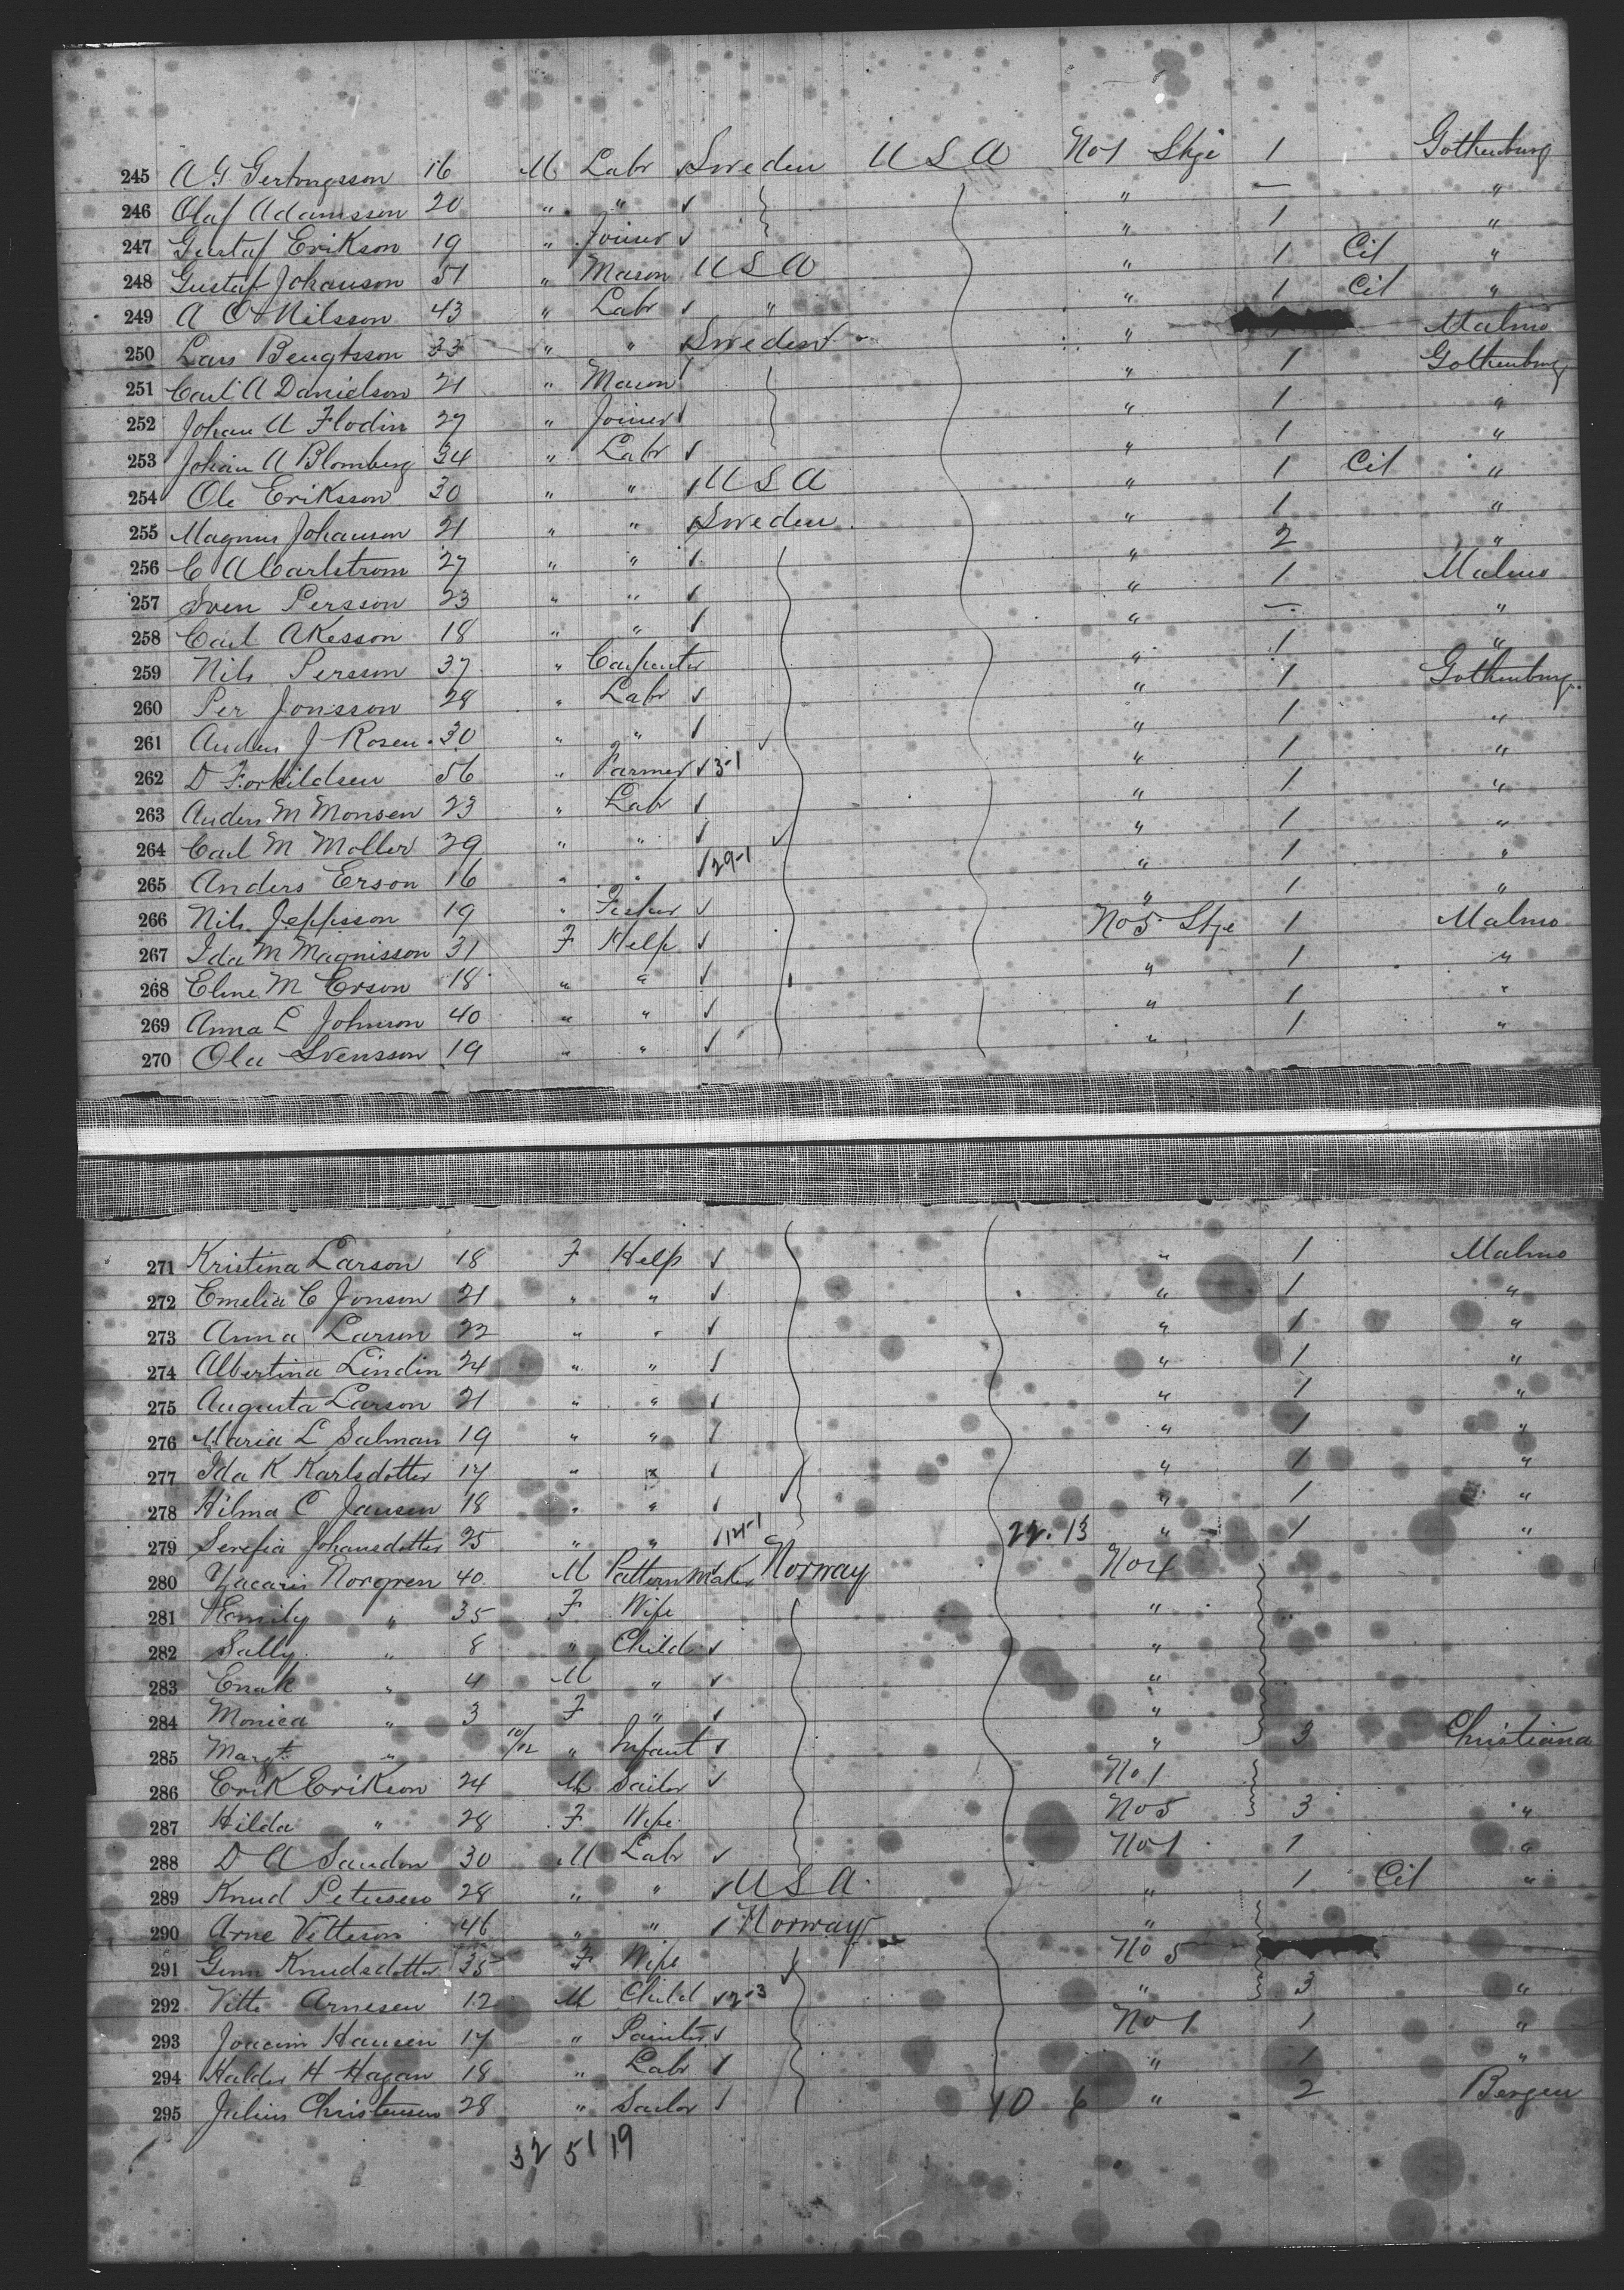 245 A G Gertingsson 16 M Labr Sweden U S A No 1 Stge 1 Gothenburg
246 Olaf Adamsson 20 " " " — "
247 Gustaf Erikson 19 " Joiner " 1 "
248 Gustaf Johanson 51 " Mason U S A " 1 Cit "
249 A O Nilsson 43 " Labr " " 1 Cit "
250 Lars Bengtsson 33 " " Sweden " Malmo
251 Carl A Danielson 21 " Mason " 1 Gothenburg
252 Johan A Flodin 27 " Joiner " 1 "
253 Johan A Blomberg 34 " Labr " 1 "
254 Ole Eriksson 30 " " U S A " 1 Cit "
255 Magnus Johanson 21 " " Sweden " 1 "
256 C A Carlstrom 27 " " " 2 "
257 Sven Persson 23 " " " 1 Malmo
258 Carl Akesson 18 " " " — "
259 Nils Persson 37 " Carpenter " 1 "
260 Per Jonsson 28 " Labr " 1 Gothenburg
261 Anders J Rosen 30 " " " 1 "
262 D Forkildsen 56 " Farmer 3-1 " 1 "
263 Anders M Monsen 23 " Labr " 1 "
264 Carl M Moller 29 " " " 1 "
265 Anders Erson 16 " " 29-1 " 1 "
266 Nils Jeppsson 19 " Fisher " 1 "
267 Ida M Magnisson 31 F Help No 5 Stge 1 Malmo
268 Eline M Erson 18 " " " 1 "
269 Anna L Johnson 40 " " " 1 "
270 Ola Svensson 19 " " " 1 "
271 Kristina Larson 18 F Help " 1 Malmo
272 Emelia C Jonson 21 " " " 1 "
273 Anna Larson 22 " " " 1 "
274 Albertina Lindin 24 " " " 1 "
275 Augusta Larson 21 " " " 1 "
276 Maria L Salman 19 " " " 1 "
277 Ida K Karlsdotter 17 " " " 1 "
278 Hilma C Jansen 18 " " " 1 "
279 Serefia Johansdotter 25 " " 14-1 22.13 " 1 "
280 Zacaris Norgren 40 M Pattern Maker Norway No 4
281 Emily " 35 F Wife "
282 Sally " 8 " Child "
283 Enak " 4 M " "
284 Monica " 3 F " "
285 Margt " 10/12 " Infant " 3 Christiana
286 Erik Erikson 24 M Sailor No 1
287 Hilda " 28 F Wife No 5 3 "
288 D A Sandon 30 M Labr No 1 1 "
289 Knud Petersen 28 " " U S A " 1 Cit "
290 Arne Vitteson 46 " " Norway "
291 Gunn Knudsdotter 35 F Wife No 5
292 Vitte Arnesen 12 M Child 2-3 " 3 "
293 Joacim Hansen 17 " Painter No 1 1 "
294 Haldor H Hagan 18 " Labr " 1 "
295 Julius Christensen 28 " Sailor 10 6 " 2 Bergen
32 51 19